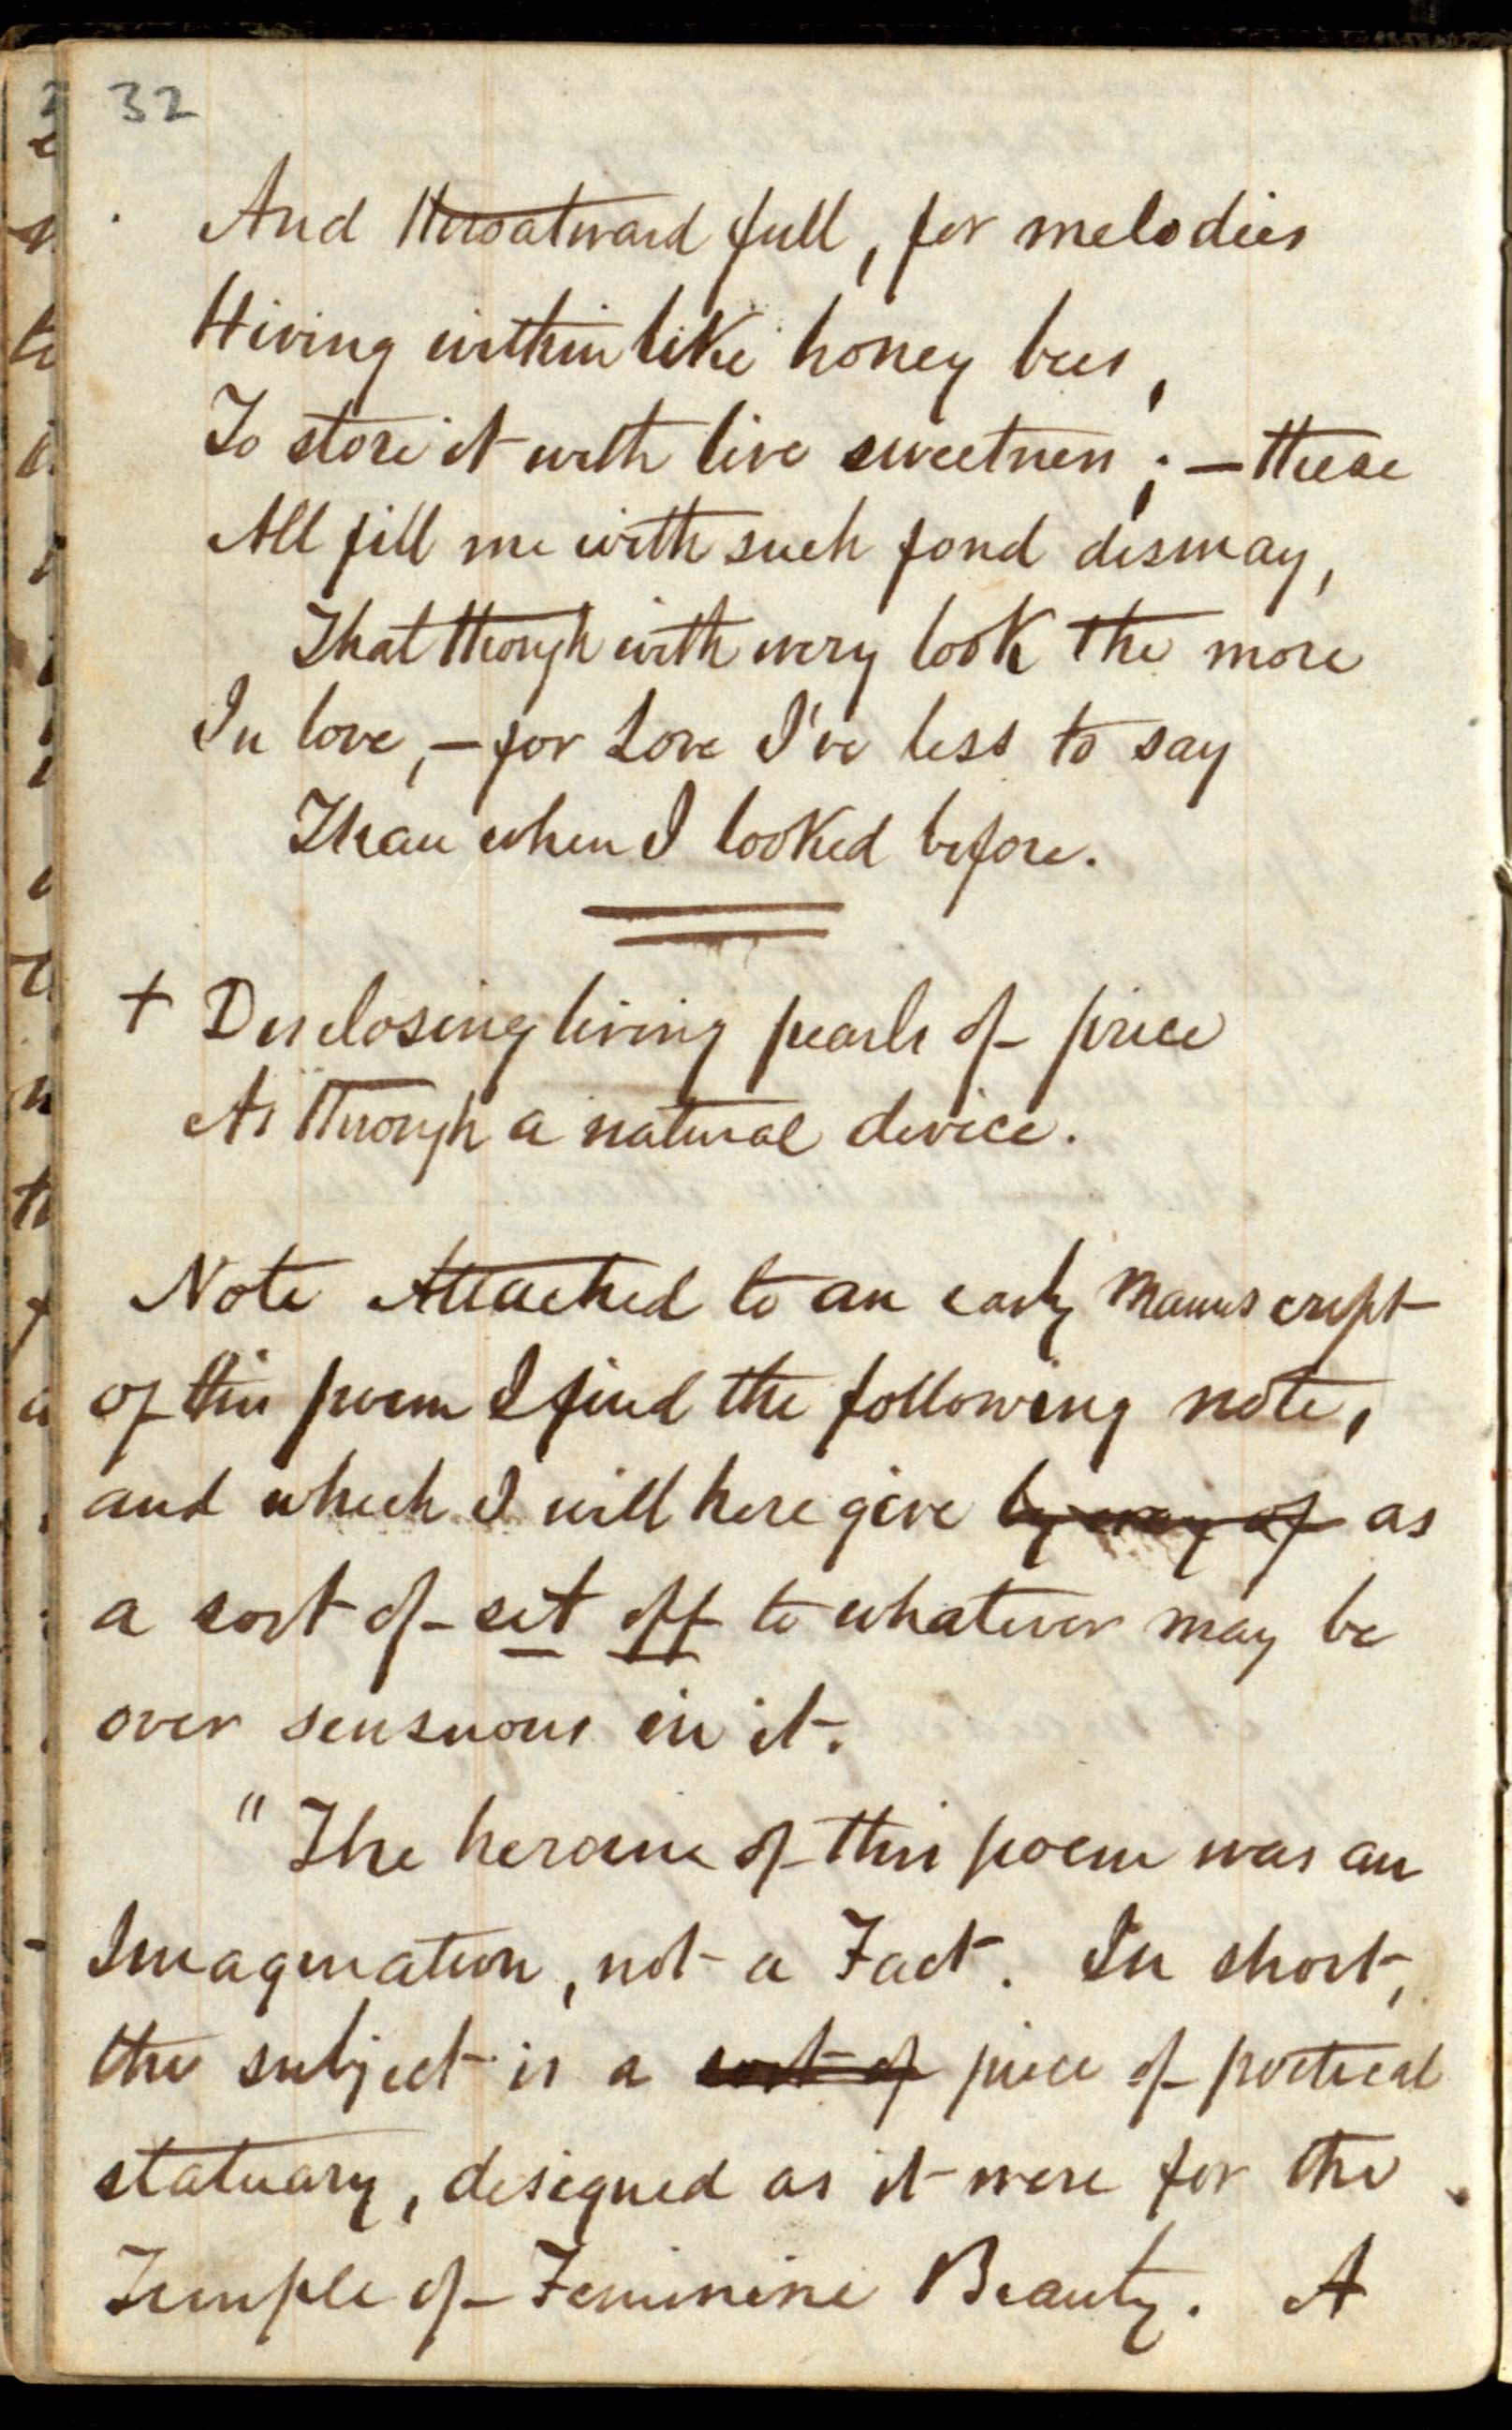 32
And throatward full, for melodies
Hiving within like honey bees,
To store it with live sweetness; — these
All fill me with such fond dismay,
That though with every look the more
In love, — for Love I've less to say
Than when I looked before.
+ Disclosing living pearls of price
As through a natural device.
Note Attached to an early Manuscript
of this poem I find the following note,
and which I will here give by way of as
a sort of set off to whatever may be
over sensuous in it.
"The heroine of this poem was an
Imagination, not a Fact. In short,
the subject is a sort of piece of poetical
statuary, designed as it were for the
Temple of Feminine Beauty. A